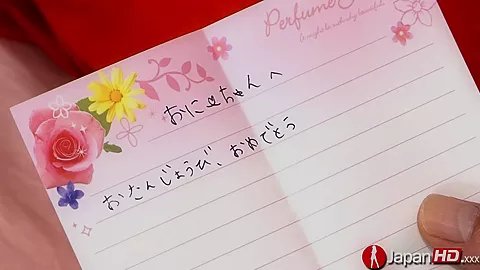 Perfume
おにーちゃんへ
おたんじょうび、おめでとう
JapanHD.xxx